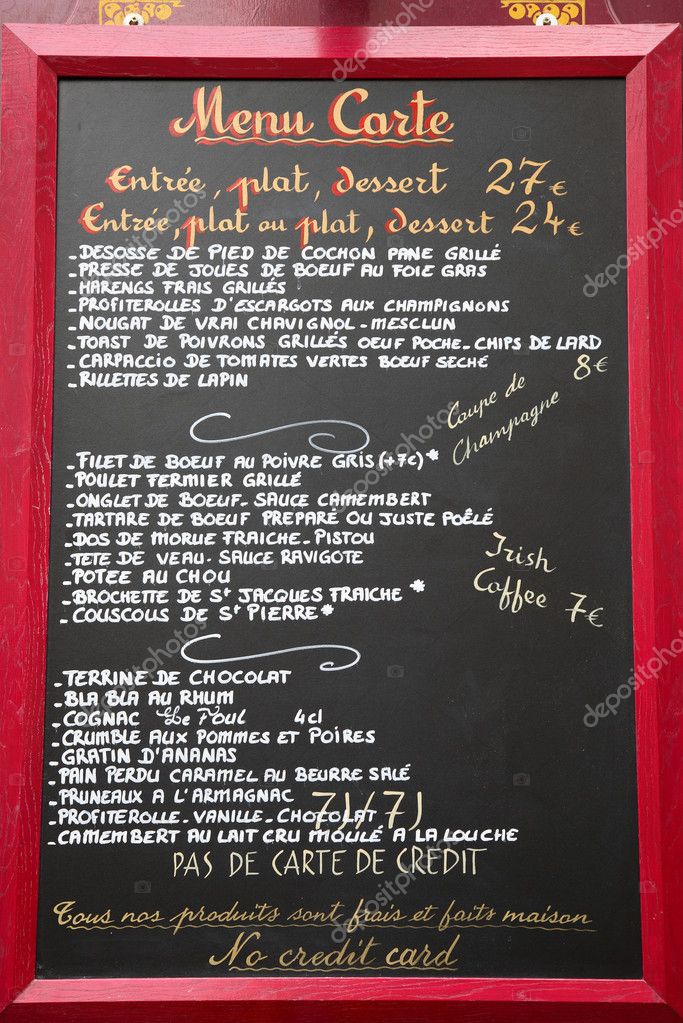 Menu Carte
Entrée, plat, dessert 27€
Entrée, plat ou plat, dessert 24€
-DESOSSE DE PIED DE COCHON PANE GRILLÉ
-PRESSE DE JOUES DE BOEUF AU FOIE GRAS
-HARENGS FRAIS GRILLÉS
-PROFITEROLLES D'ESCARGOTS AUX CHAMPIGNONS
-NOUGAT DE VRAI CHAVIGNOL-MESCLUN
-TOAST DE POIVRONS GRILLÉS OEUF POCHE-CHIPS DE LARD
-CARPACCIO DE TOMATES VERTES BOEUF SECHÉ
-RILLETTES DE LAPIN
Coupe de Champagne 8€
-FILET DE BOEUF AU POIVRE GRIS (+7€)*
-POULET FERMIER GRILLÉ
-ONGLET DE BOEUF-SAUCE CAMEMBERT
-TARTARE DE BOEUF PREPARÉ OU JUSTE POÊLÉ
-DOS DE MORUE FRAICHE-PISTOU
-TETE DE VEAU-SAUCE RAVIGOTE
-POTEE AU CHOU
-BROCHETTE DE St JACQUES FRAICHE *
-COUSCOUS DE St PIERRE*
Irish
Coffee 7€
-TERRINE DE CHOCOLAT
-BLA BLA AU RHUM
-COGNAC Le Poul 4cl
-CRUMBLE AUX POMMES ET POIRES
-GRATIN D'ANANAS
-PAIN PERDU CARAMEL AU BEURRE SALÉ
-PRUNEAUX A L'ARMAGNAC
-PROFITEROLLE-VANILLE-CHOCOLAT
-CAMEMBERT AU LAIT CRU MOULÉ A LA LOUCHE
7J/7J
PAS DE CARTE DE CREDIT
Tous nos produits sont frais et faits maison
No credit card
depositphotos
depositphotos
depositphotos
depositphotos
depositphotos
depositphotos
depositphotos